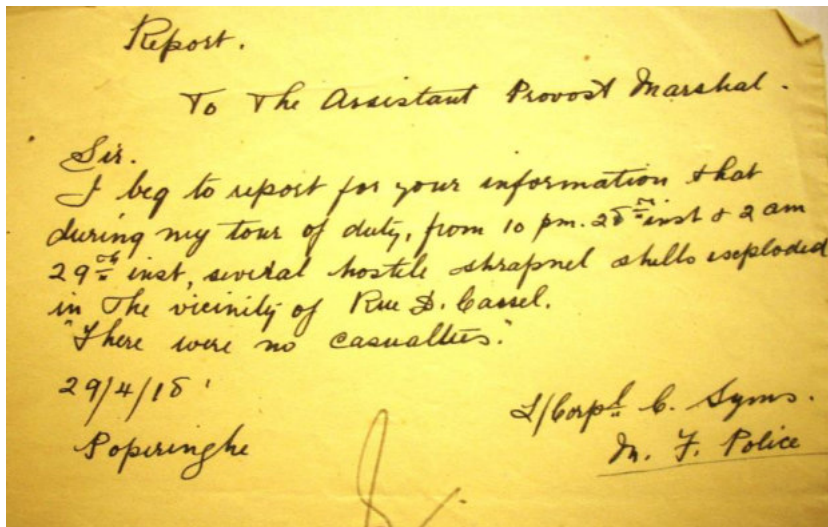 Report.
To The Assistant Provost Marshal.
Sir.
I beg to report for your information that
during my tour of duty, from 10 pm. 28th inst & 2 am
29th inst, several hostile shrapnel shells exploded
in the vicinity of Rue D. Cassel.
"There were no casualties."
29/4/18
L/Corpl C. Syms.
Poperinghe
M. F. Police